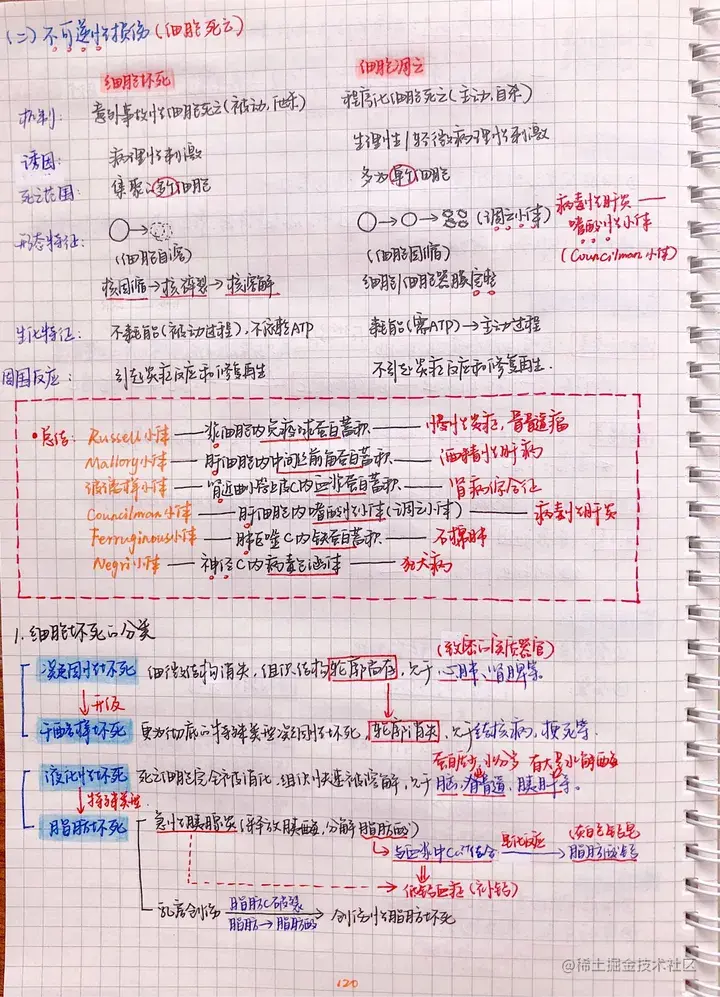 (二) 不可逆性损伤 (细胞死亡)
细胞坏死 细胞凋亡
机制: 意外事故性细胞死亡(被动,他杀) 程序化细胞死亡(主动,自杀)
诱因: 病理性刺激 生理性/轻微病理性刺激
死亡范围: 集聚的多个细胞 多为单个细胞
形态特征: (凋亡小体) 病毒性肝炎——
嗜酸性小体
(Councilman小体)
(细胞自溶) (细胞固缩)
核固缩→核碎裂→核溶解 细胞/细胞器膜完整
生化特征: 不耗能(被动过程),不依赖ATP 耗能(需ATP)→主动过程
周围反应: 引起炎症反应和修复再生 不引起炎症反应和修复再生.
•总结: Russell小体——浆细胞内免疫球蛋白蓄积——慢性炎症,骨髓瘤
Mallory小体——肝细胞内中间丝前角蛋白蓄积——酒精性肝病
玻璃样小体——肾近曲小管上皮C内血浆蛋白蓄积——肾病综合征
Councilman小体——肝细胞内嗜酸性小体(凋亡小体)——病毒性肝炎
Ferruginous小体——肺巨噬C内铁蛋白蓄积——石棉肺
Negri小体——神经C内病毒包涵体——狂犬病
1. 细胞坏死的分类
(致密的实质器官)
凝固性坏死 细微结构消失,组织结构轮廓尚存,见于心肺、肾脾等。
↓升级
干酪样坏死 更为彻底的特殊类型凝固性坏死,轮廓消失,见于结核病,梗死等.
蛋白质少,水分多 有大量水解酶
液化性坏死 死亡细胞完全被消化,组织快速被溶解,见于脑,脊髓,胰肝等.
↓特殊类型
脂肪坏死 急性胰腺炎(释放胰酶,分解脂肪酸)
与血浆中Ca²⁺结合 皂化反应 (灰白色钙皂) 脂肪酸钙
低钙血症(补钙)
乳房创伤 脂肪C破裂 脂肪→脂肪酸 → 创伤性脂肪坏死
120
@稀土掘金技术社区